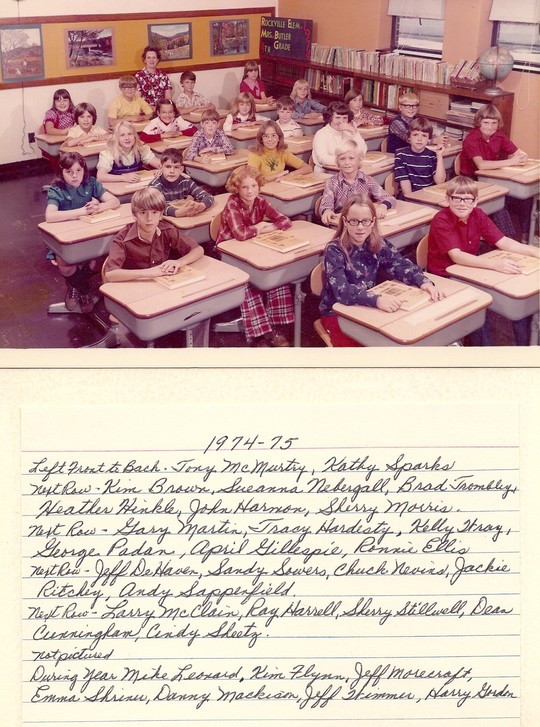 ROCKVILLE ELEM.
MRS. BUTLER
4TH GRADE
1974-75
Left Front to Back - Tony McMurtry, Kathy Sparks
Next Row - Kim Brown, Sueanna Nebergall, Brad Trombley,
Heather Hinkle, John Harmon, Sherry Morris.
Next Row - Gary Martin, Tracy Hardesty, Kelly Wray,
George Padan, April Gillespie, Ronnie Ellis
Next Row - Jeff DeHaven, Sandy Sowers, Chuck Nevins, Jackie
Ritchey, Andy Sappenfield.
Next Row - Larry McClain, Ray Harrell, Sherry Stillwell, Dean
Cunningham, Cindy Sheetz.
Not pictured
During Year Mike Leonard, Kim Flynn, Jeff Morecraft,
Emma Shriner, Danny Mackison, Jeff Trimmer, Harry Gordon